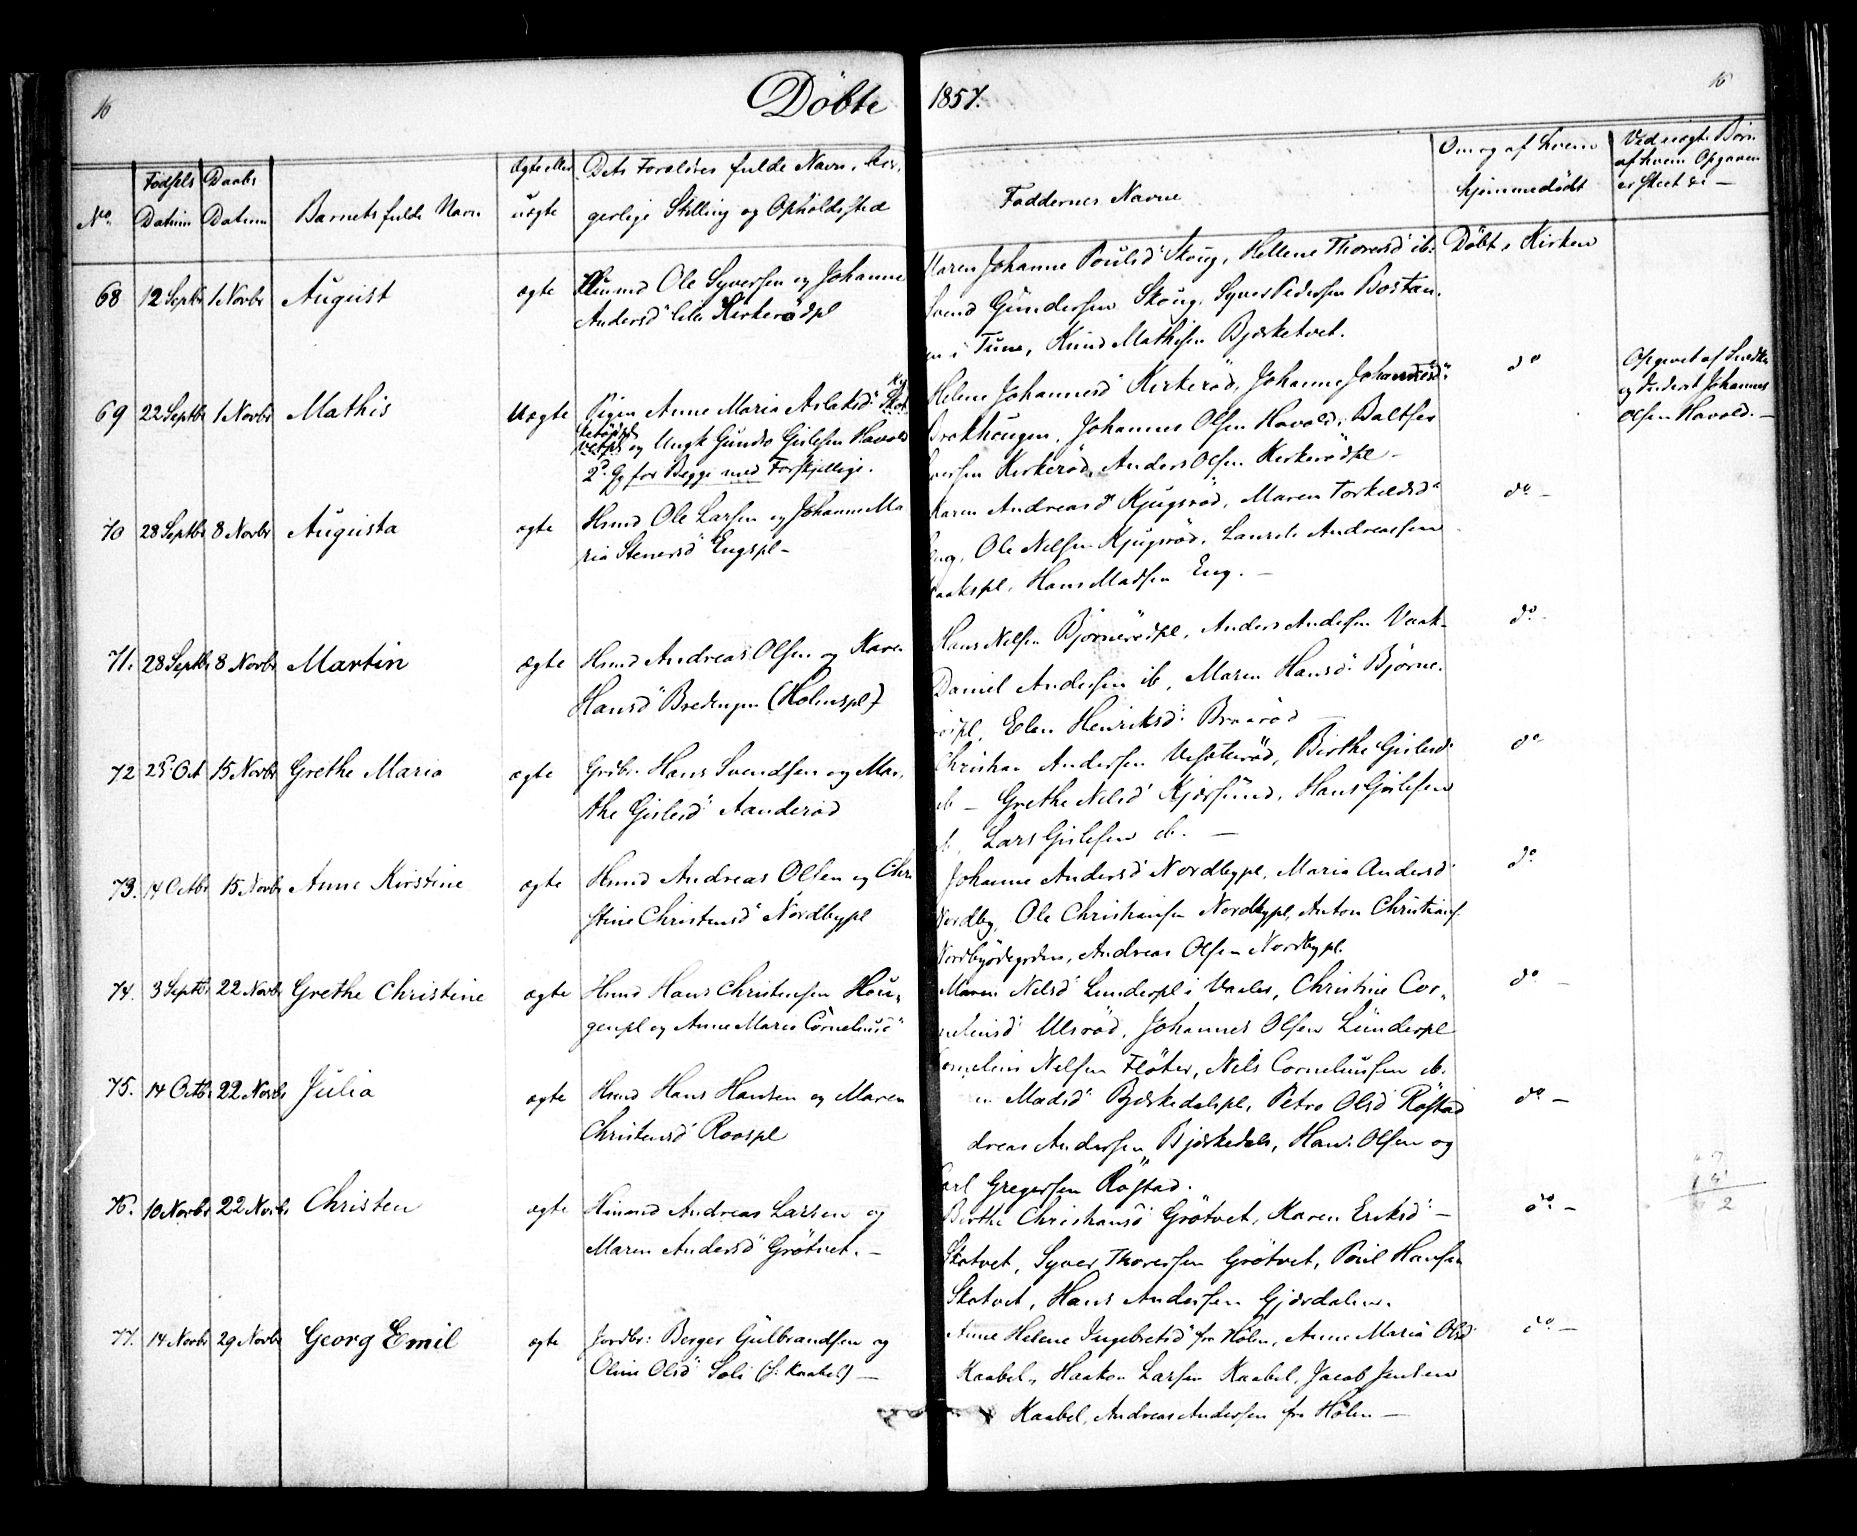 16
Döbte 1857.
16
No.
Födsels Datum
Daabs Datum
Barnets fulde Navn
Ægte eller uægte
Dets Forældres fulde Navn, bor-
gerlige Stilling og Opholdssted
Faddernes Navne
Om og af hvem
hjemmedöbt
Ved uægte Börn
af hvem Opgaven
er skeet &c —
68 12 Septbr 1 Novbr August ægte Huusmd Ole Syversen og Johanne
Andersd Lille Kirkerödpl
Maren Johanne Poulsd Skoug, Hellene Thoresd ib.
Svend Gundersen Skoug, Syver Pedersen Bostan-
en i Tune, Knud Mathisen Bjerketvet.
Döbt i Kirken
69 22 Septbr 1 Novbr Mathis Uægte Pigen Anne Maria Aslaksd
og Ungk Gunder Gislesen Havold
2d Gg for Begge med Forskjellige.
Helene Johannesd Kirkeröd, Johanne Johannesd
Brækhougen, Johannes Olsen Havold, Baltser
Iversen Kirkeröd, Anders Olsen Kirkerödpl —
do
Opgivet af
Johannes
Olsen Havold. —
70 28 Septbr 8 Novbr Augusta ægte Hsmd Ole Larsen og Johanne Ma
ria Stenersd Engspl —
Karen Andreasd Kjugeröd, Maren Torkildsd
Eng, Ole Nelsen Kjugeröd, Laurits Andreassen
Vaakspl, Hans Madsen Eng. —
do —
71. 28 Septbr 8 Novbr Martin ægte Hsmd Andreas Olsen og Karen
Hansd Bredengen (Holmspl)
Hans Nelsen Björnerödpl, Anders Andersen Vaak-
Daniel Andersen ib, Maren Hansd Björne-
rödpl, Elen Henriksd Braaröd —
do —
72 25 Oct 15 Novbr Grethe Maria ægte Grdbr. Hans Svendsen og Mar-
the Gislesd Aanderöd
Christian Andersen Vesteröd, Birthe Gislesd
ib — Grethe Nelsd Kjærsund, Hans Gislesen
ib, Lars Gislesen ib. —
do
73. 14 Octbr 15 Novbr Anne Kirstine ægte Hsmd Andreas Olsen og Chri
stine Christensd Nordbypl
Johanne Andersd Nordbypl, Maria Andersd
Nordby, Ole Christiansen Nordbypl, Anton Christians.
Nordbyödegrden, Andreas Olsen Nordbypl.
do
74. 3 Septbr 22 Novbr Grethe Christine ægte Hsmd Hans Christensen Hou-
genpl og Anne Marie Corneliusd
Maren Nelsd Lunderpl i Vaaler, Christine Cor-
neliusd Ulsröd, Johannes Olsen Lunderpl
Cornelius Nelsen Flöter, Nils Corneliussen ib.
do —
75. 14 Octbr 22 Novbr Julia ægte Hsmd Hans Hansen og Maren
Christensd Roospl
Madsd Bjerkedalspl, Petra Olsd Röstad
dreas Andersen Bjerkedal, Hans Olsen og
Carl Gregersen Röstad.
do —
76. 10 Novbr 22 Novbr Christen ægte Huusmd Andreas Larsen og
Maren Andersd Grötvet. —
Birthe Christiansd Grötvet, Karen Eriksd —
Skotvet, Syver Thoresen Grötvet, Poul Hansen
Skotvet, Hans Andersen Gjerdalen.
do —
77. 14 Novbr 29 Novbr Georg Emil ægte Jordbr: Berger Gulbrandsen og
Oline Olsd Soli (s. Kaabel) —
Anne Helene Ingebretsd fra Hölen, Anne Maria Olsd
Kaabel, Haakon Larsen Kaabel, Jacob Jensen
Kaabel, Andreas Andersen fra Hölen —
do —